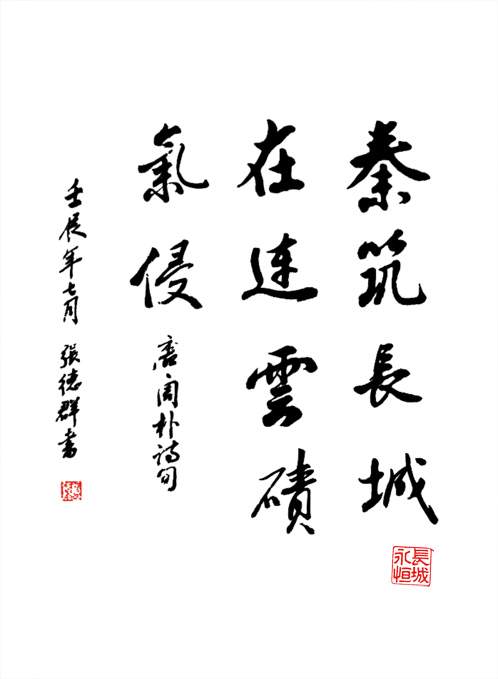 秦筑長城
在連雲磧
氣侵
唐周朴诗句
壬辰年七月 張德群书
長城
永恒